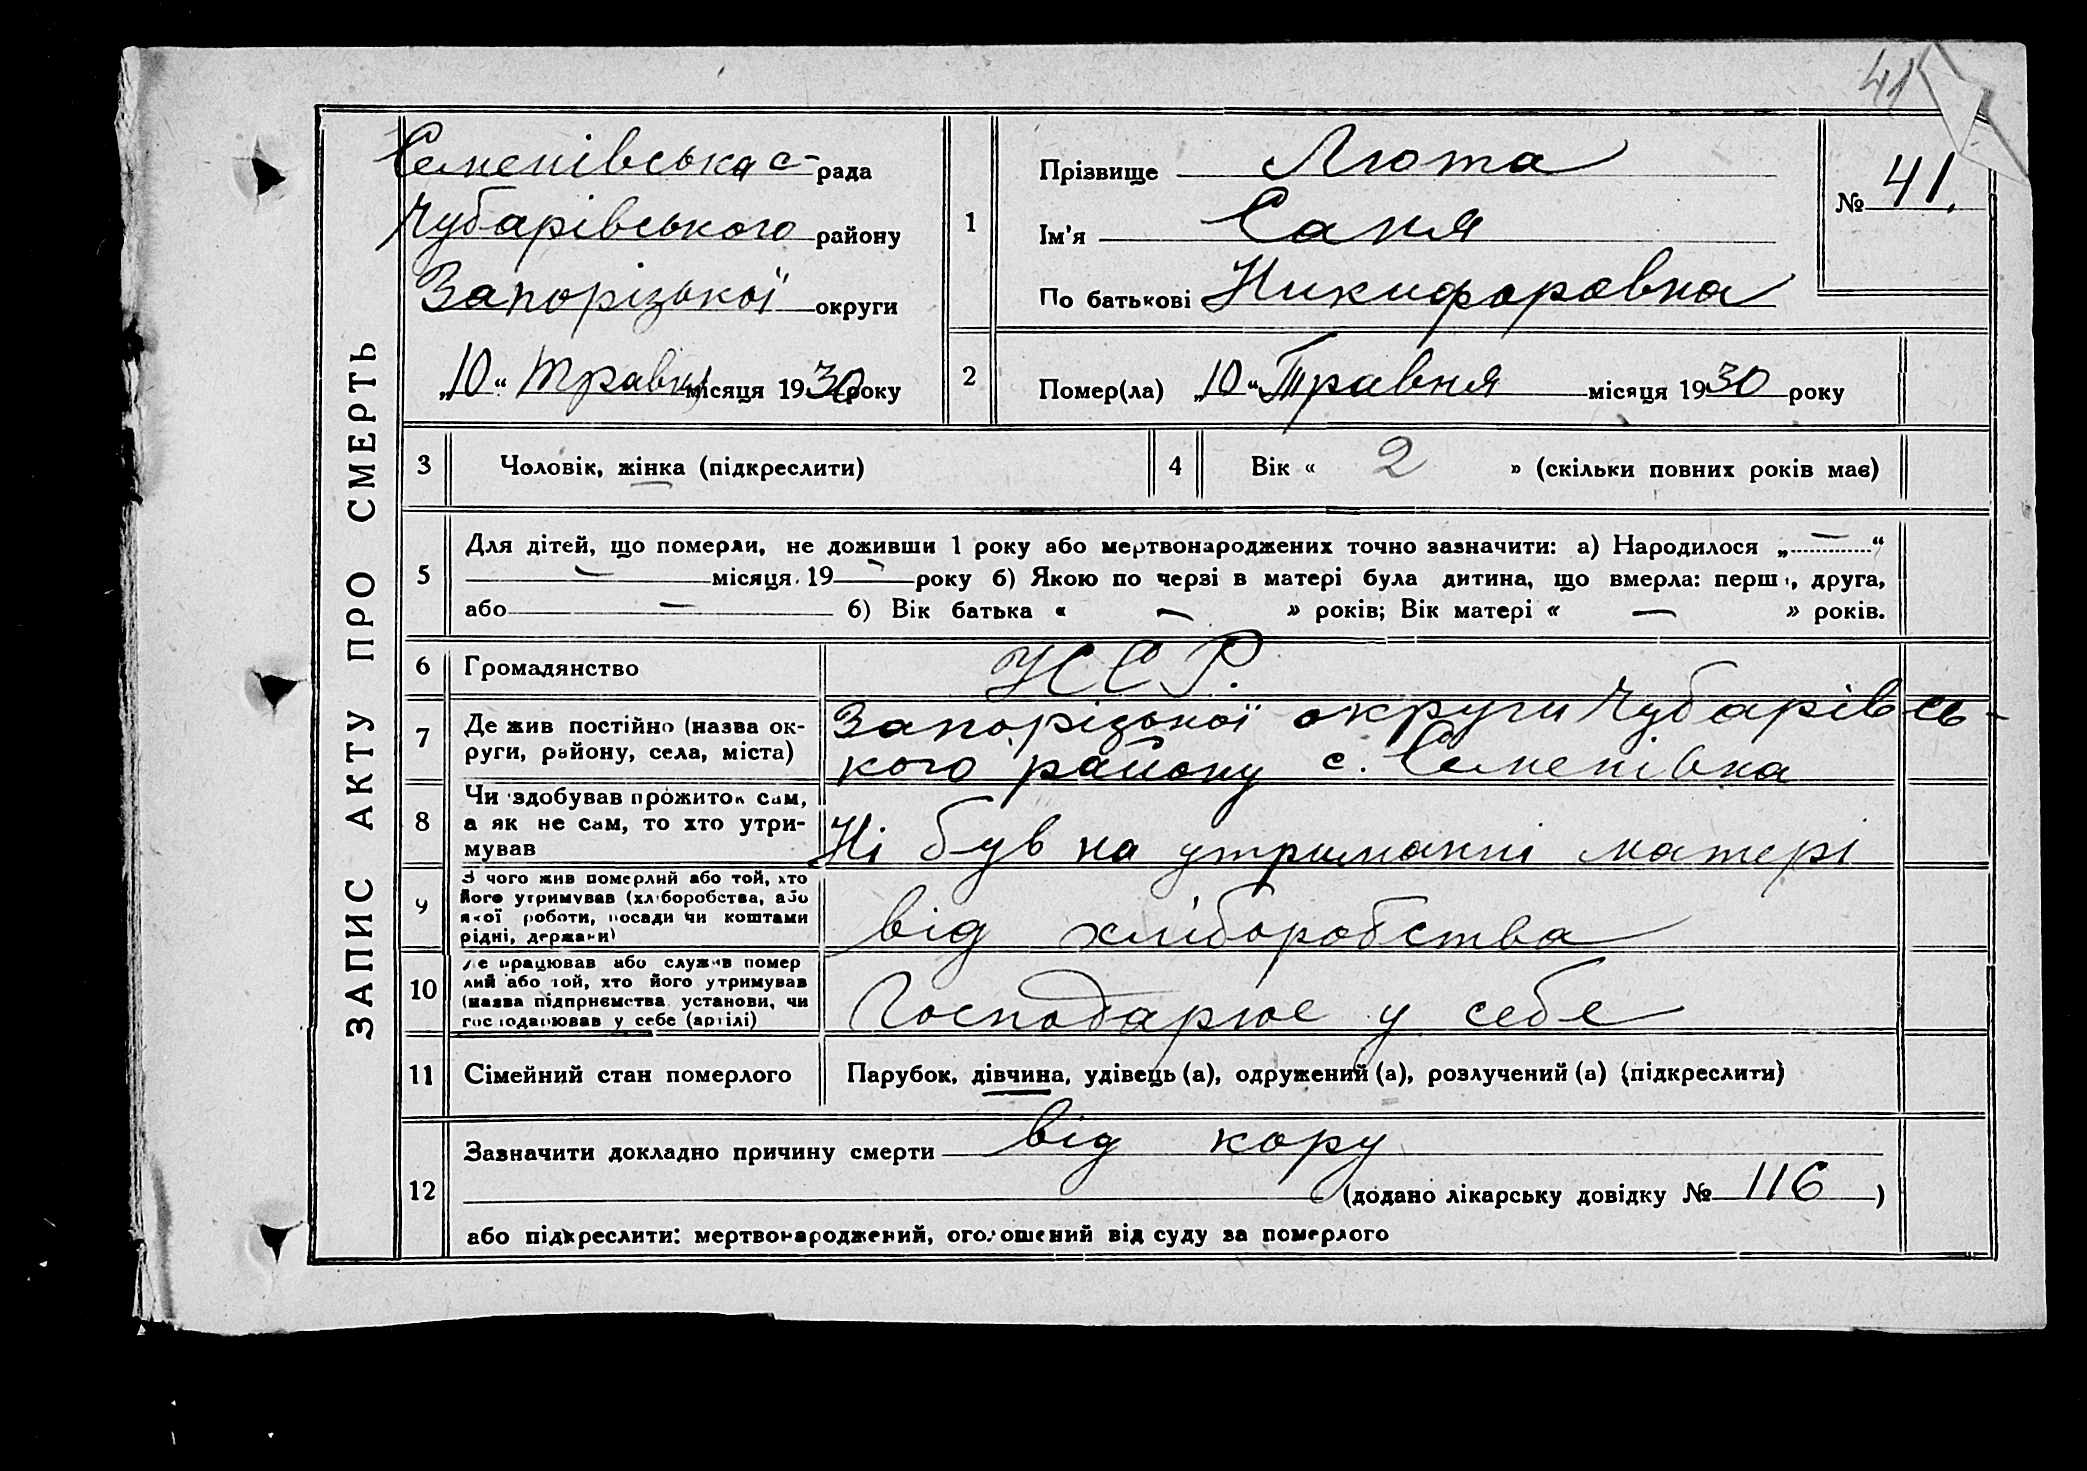 41
ЗАПИС АКТУ ПРО СМЕРТЬ
Семенівська с-рада
Чубарівського району
Запорізької округи
„10“ Травня місяця 1930 року
1
Прізвище Люта
Ім'я Саня
По батькові Никифоровна
№ 41.
2
Помер(ла) „10“ Травня місяця 1930 року
3 Чоловік, жінка (підкреслити)
4 Вік « 2 » (скільки повних років має)
5
Для дітей, що померли, не доживши 1 року або мертвонароджених точно зазначити: а) Народилося „—“
— місяця 19 — року б) Якою по черзі в матері була дитина, що вмерла: перша, друга,
або — б) Вік батька « — » років; Вік матері « — » років.
6 Громадянство УССР.
7
Де жив постійно (назва ок-
руги, району, села, міста)
Запорізької округи Чубарівсь-
кого району с. Семенівка
8
Чи здобував прожиток сам,
а як не сам, то хто утри-
мував
Ні був на утриманні матері
9
З чого жив померлий або той, хто
його утримував (хліборобства, або
якої роботи, посади чи коштами
рідні, держави)
від хліборобства
10
Де працював або служив помер
лий або той, хто його утримував
(назва підприємства установи, чи
господарював у себе (артілі)
Господарює у себе
11 Сімейний стан померлого Парубок, дівчина, удівець (а), одружений (а), розлучений (а) (підкреслити)
12
Зазначити докладно причину смерти від кору
(додано лікарську довідку № 116)
або підкреслити: мертвонароджений, оголошений від суду за померлого